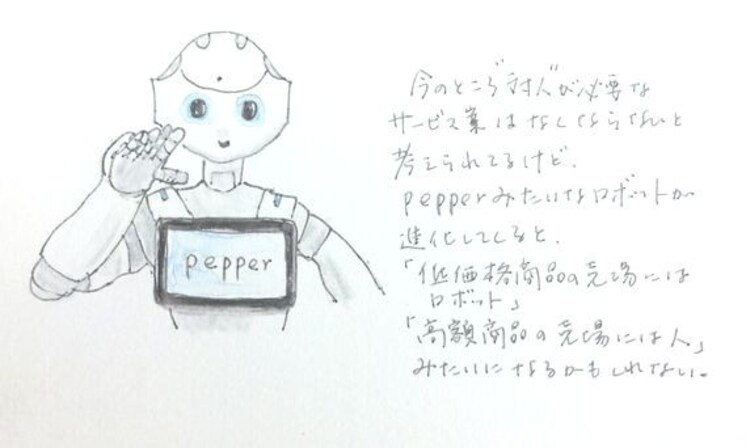 pepper
今のところ"対人"が必要な
サービス業はなくならないと
考えられてるけど、
pepperみたいなロボットが
進化してくると、
「低価格商品の売場には
ロボット」
「高額商品の売場には人」
みたいになるかもしれない。